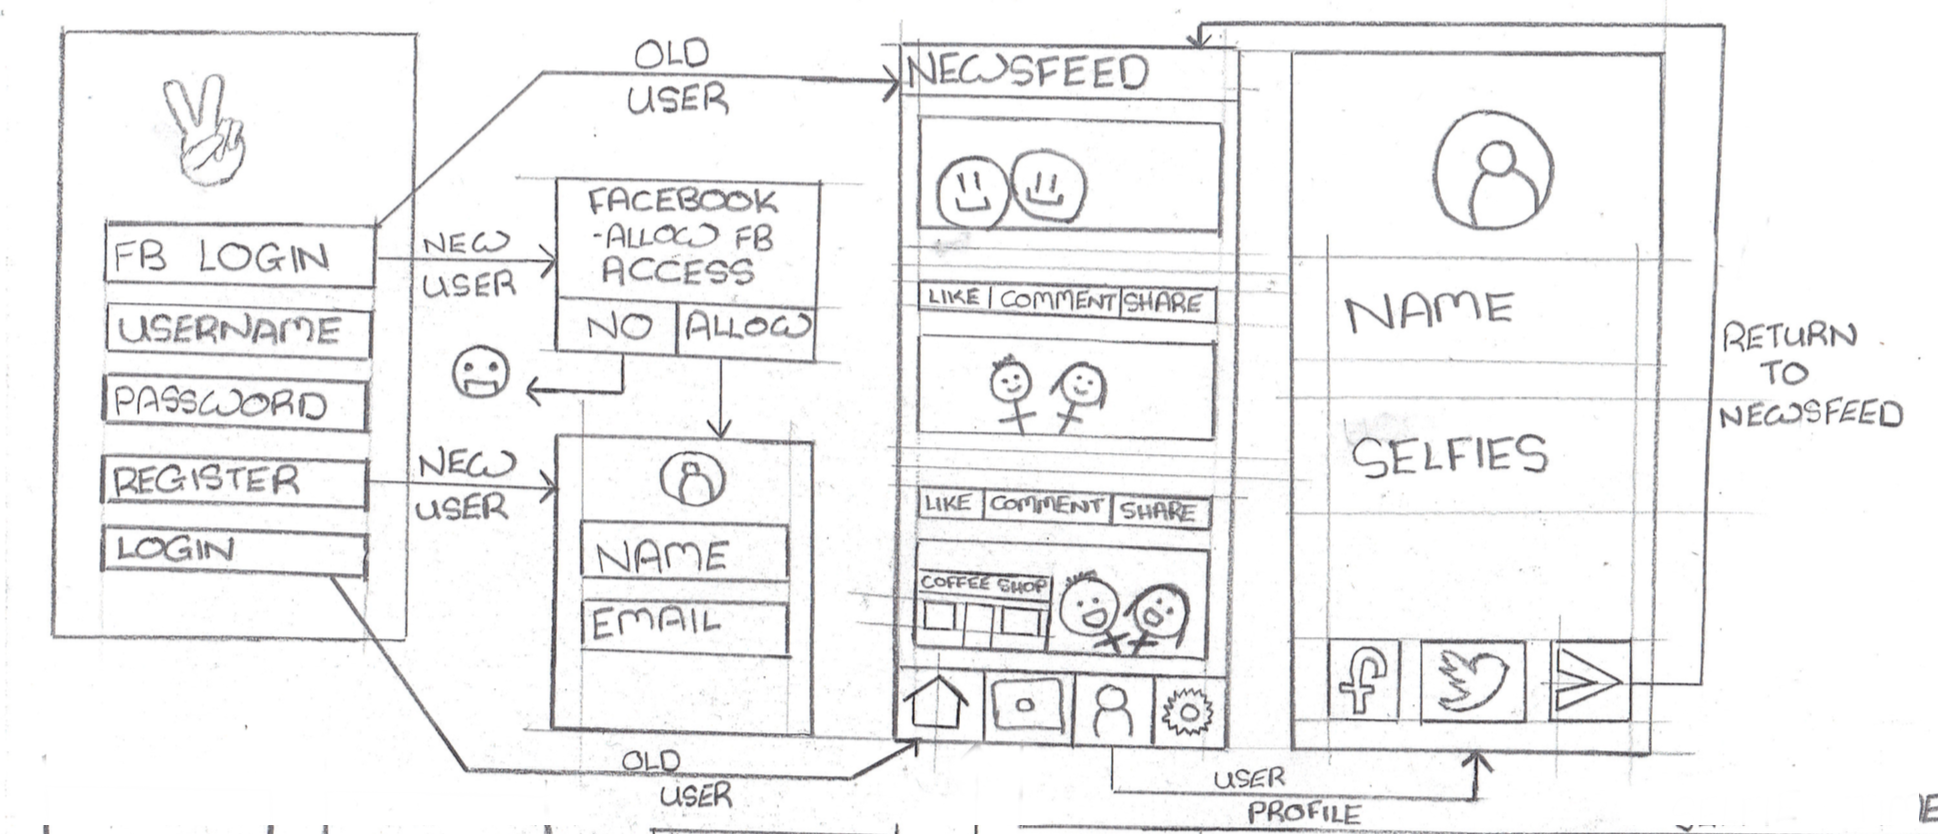 FB LOGIN
USERNAME
PASSWORD
REGISTER
LOGIN
OLD
USER
NEW
USER
FACEBOOK
-ALLOW FB
ACCESS
NO
ALLOW
NEW
USER
NAME
EMAIL
OLD
USER
NEWSFEED
LIKE COMMENT SHARE
LIKE COMMENT SHARE
COFFEE SHOP
USER
PROFILE
NAME
SELFIES
RETURN
TO
NEWSFEED